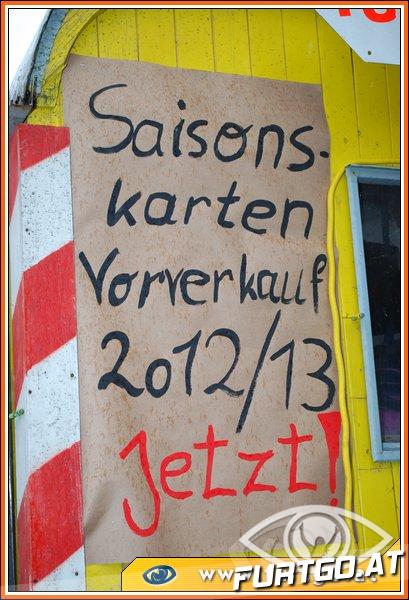 Saisons-
karten
Vorverkauf
2012/13
Jetzt!
FURTGO.AT